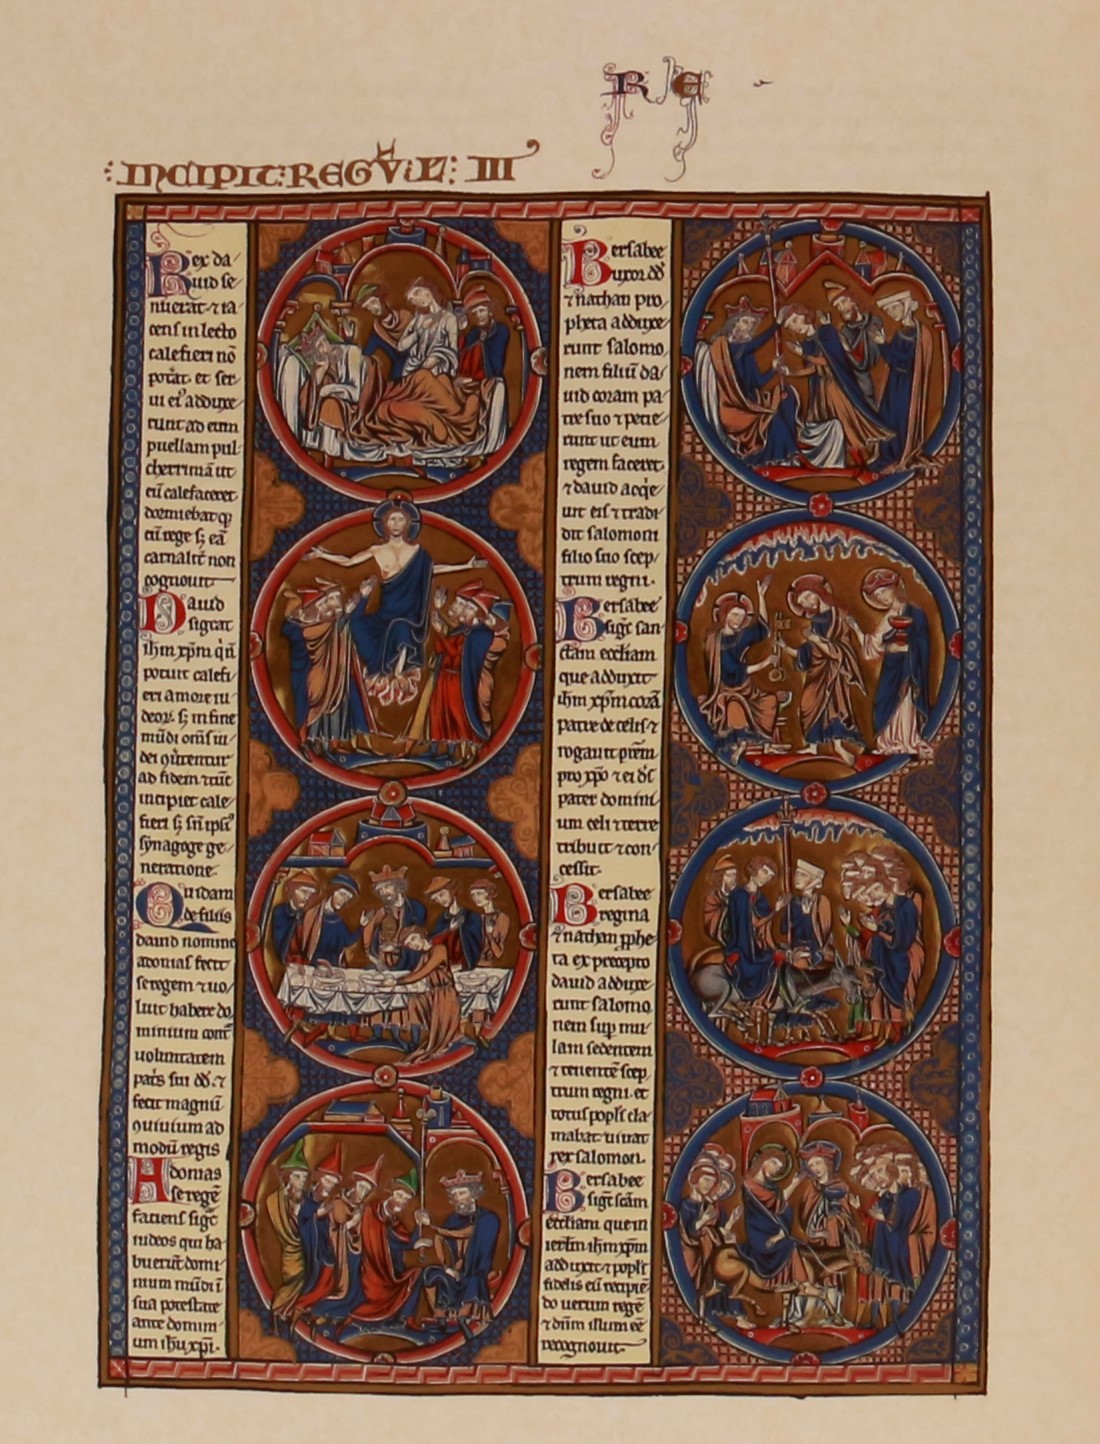 R E
INCIPIT: REGVM: III
Rex da/
uid se/
nuerat ⁊ ia/
cens in lecto
calefieri nō
potat. et ser/
ui ei⁹ adduxe/
runt ad eum
puellam pul/
cherrimā ut
eū calefaceret
dormiebat qꝫ
cū rege sꝫ eā
carnalit̄ non
cognouit
Dauid
signat
ihm xp̄m q̄
potuit calefi/
eri amore iu/
deoꝝ. sꝫ in fine
mūdi om̄s iu/
dei 9uertentur
ad fidem ⁊ tūc
incipiet cale/
fieri sꝫ
synagoge ge/
neratione.
Quidam
de filiis
dauid nomine
adonias fecit
se regem ⁊ uo/
luit habere do/
minium cont̄
uoluntatem
pat̄s sui dd̄. ⁊
fecit magnū
9uiuium ad
modū regis
Adonias
se regē
faciens siḡt
iudeos qui ha/
buerūt domi/
nium mūdi ī
sua potestate
ante domin/
um ihū xp̄i.
Bersabee
uxor dd̄
⁊ nathan pro/
pheta adduxe/
runt salomo/
nem filiū da/
uid coram pa/
tre suo ⁊ petie/
runt ut eum
regem faceret.
⁊ dauid acq̄e/
uit eis ⁊ tradi/
dit salomoni
filio suo scep/
trum regni.
Bersabee
siḡt san/
ctam eccliam
que adduxit
ihm xp̄m corā
patre de celis ⁊
rogauit p̄rem
pro xp̄o ⁊ ei d̄s
pater domini/
um celi ⁊ terre
tribuit ⁊ con/
cessit.
Bersabee
regina
⁊ nathan ꝓphe/
ta ex precepto
dauid adduxe/
runt salomo/
nem sup̄ mu/
lam sedentem
⁊ tenentē scep/
trum regni. et
totus popl's cla/
mabat uiuat
rex salomon.
Bersabee
siḡt scām
eccliam que in
ierl̄m ihm xp̄m
adduxit ⁊ popl's
fidelis eū recipiē/
do uerum regē
⁊ dn̄m illum eē
recognouit.